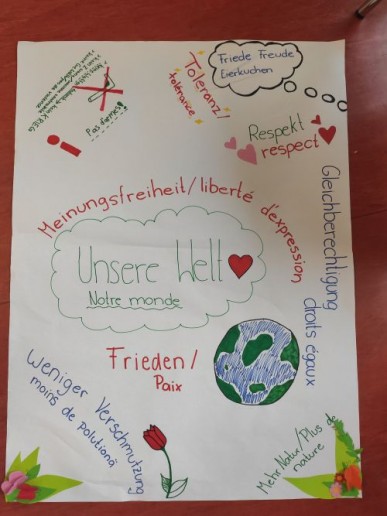 Friede Freude
Eierkuchen
Toleranz/
tolérance
Respekt
respect
KRIEG
Pas
Meinungsfreiheit/liberté d'expression
Gleichberechtigung
droits égaux
Unsere Welt
Notre monde
Frieden/
Paix
Weniger Verschmutzung
moins de polutionā
Mehr Natur/Plus de
nature